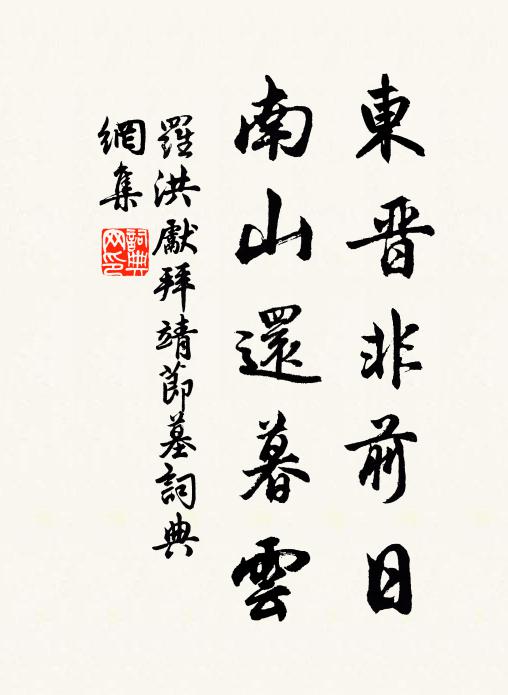 東晋非前日
南山還暮雲
羅洪獻拜靖節墓詞典
網集
詞典
网印